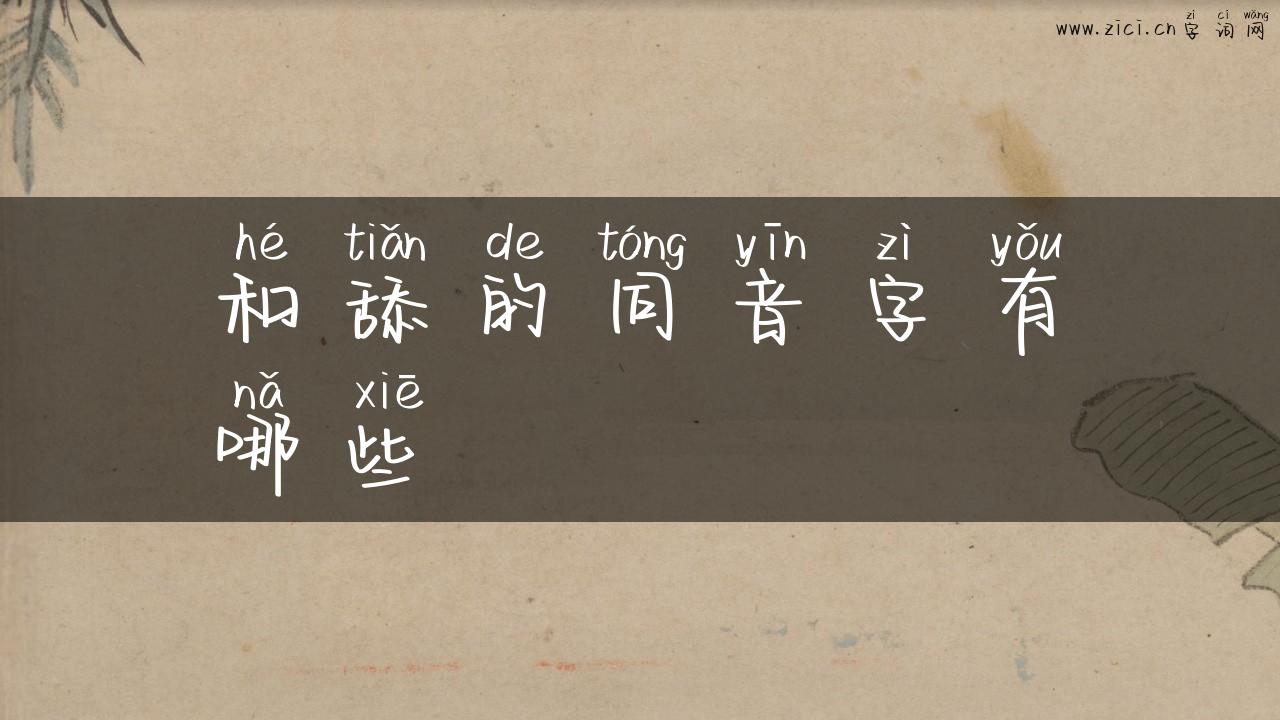 zì cí wǎng
www.zici.cn 字词网
hé tiǎn de tóng yīn zì yǒu
和舔的同音字有
nǎ xiē
哪些